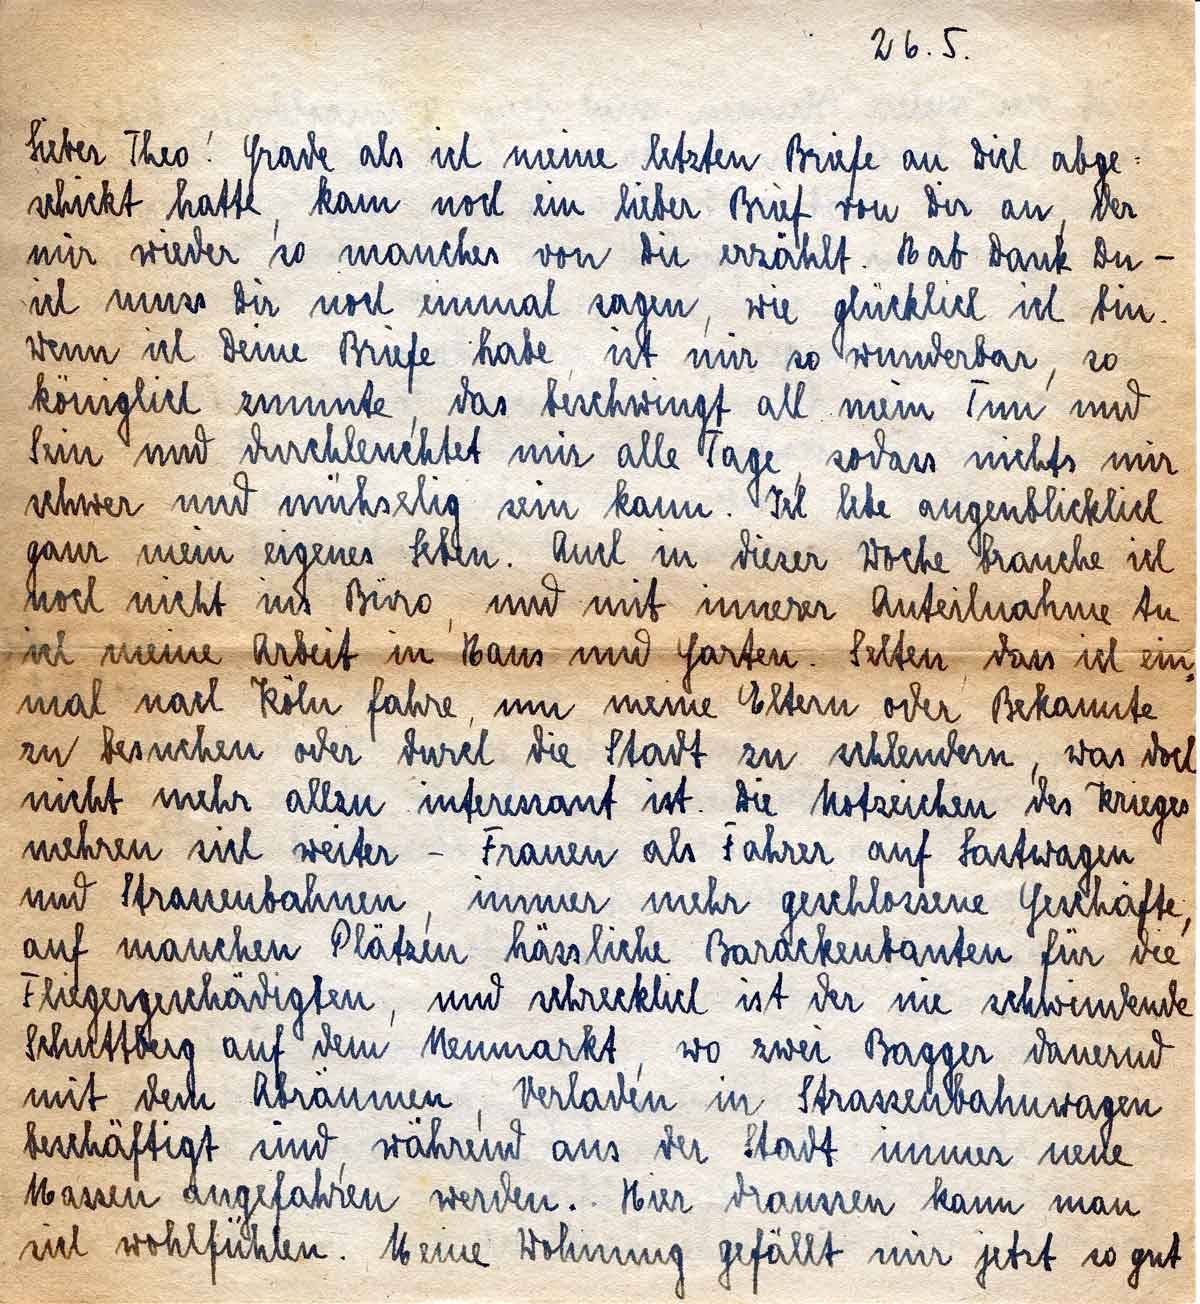 26.5.
Lieber Theo! Grade als ich meine letzten Briefe an Dich abge=
schickt hatte, kam noch ein lieber Brief von Dir an, der
mir wieder so manches von Dir erzählt. Hab Dank Du -
ich muss Dir noch einmal sagen, wie glücklich ich bin.
Wenn ich Deine Briefe habe, ist mir so wunderbar, so
königlich zumute, das beschwingt all mein Tun und
Sein und durchleuchtet mir alle Tage, sodass nichts mir
schwer und mühselig sein kann. Ich lebe augenblicklich
ganz mein eigenes Leben. Auch in dieser Woche brauche ich
noch nicht ins Büro, und mit innerer Anteilnahme tu
ich meine Arbeit in Haus und Garten. Selten, dass ich ein=
mal nach Köln fahre, um meine Eltern oder Bekannte
zu besuchen oder durch die Stadt zu schlendern, was doch
nicht mehr allzu interessant ist. Die Notzeichen des Krieges
mehren sich weiter - Frauen als Fahrer auf Lastwagen
und Strassenbahnen, immer mehr geschlossene Geschäfte,
auf manchen Plätzen hässliche Barackenbauten für die
Fliegergeschädigten, und schrecklich ist der nie schwindende
Schuttberg auf dem Neumarkt, wo zwei Bagger dauernd
mit dem Abräumen, Verladen in Strassenbahnwagen
beschäftigt sind, während aus der Stadt immer neue
Massen angefahren werden. Hier draussen kann man
sich wohlfühlen. Meine Wohnung gefällt mir jetzt so gut